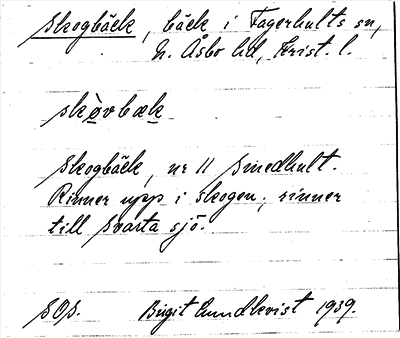 Skogbäck, bäck i Fagerhults sn,
N. Åsbo hd, Krist. l.
skòvbæk
Skogbäck, nr 11 Smedhult.
Rinner upp i skogen; rinner
till Svarta sjö.
SOS. Birgit Lundkvist 1939.